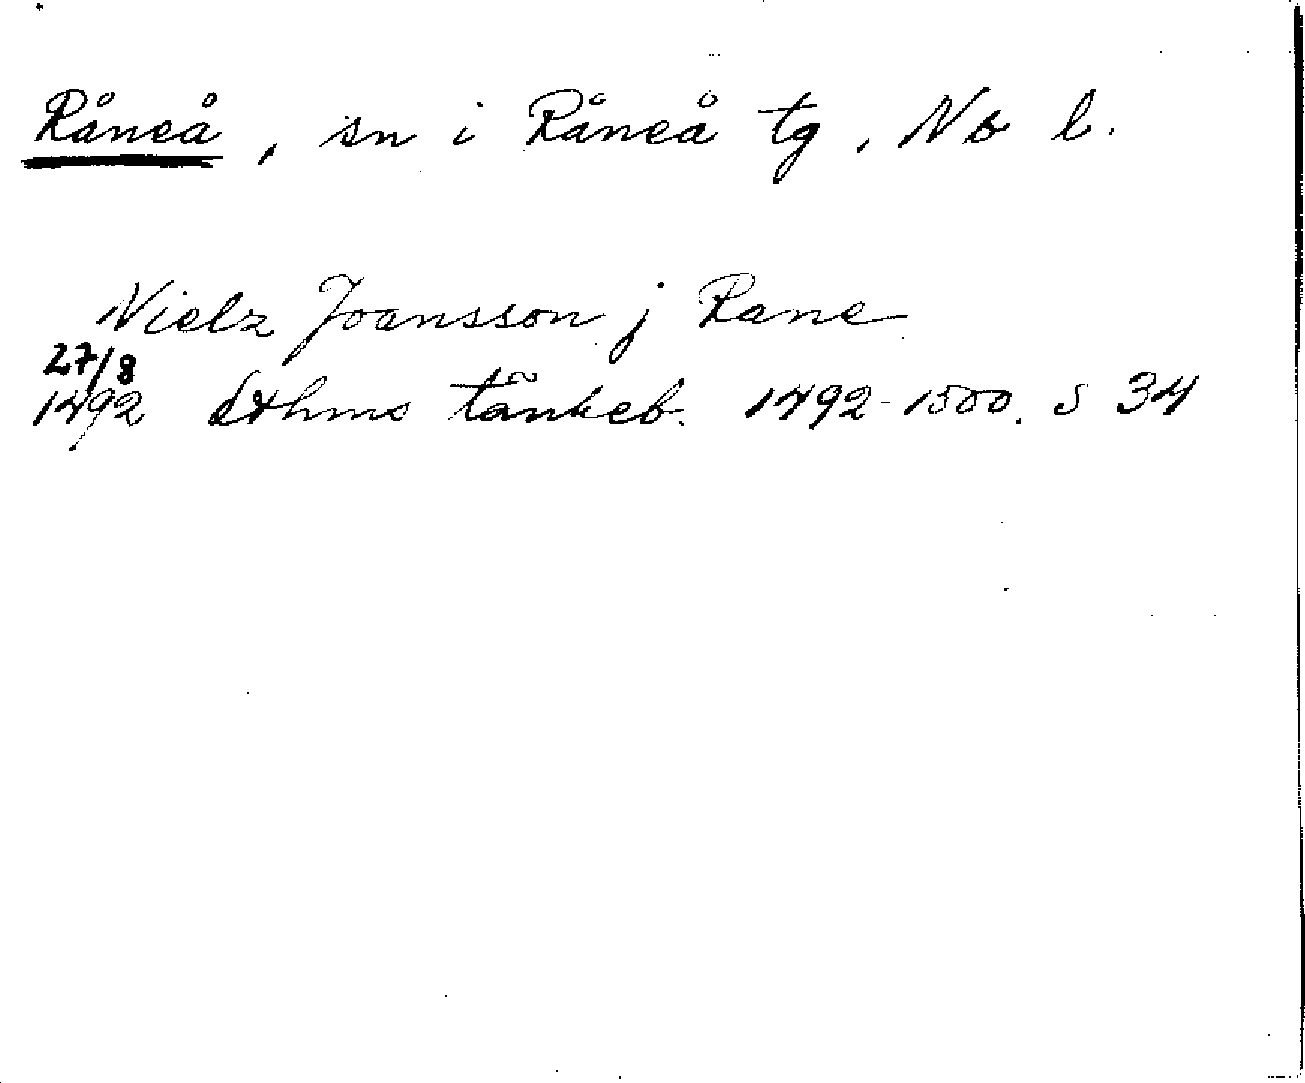 Råneå, sn i Råneå tg, Nb l.
Nielz Joansson j Rane
27/8
1492 Sthms tänkeb. 1492-1500. s 34